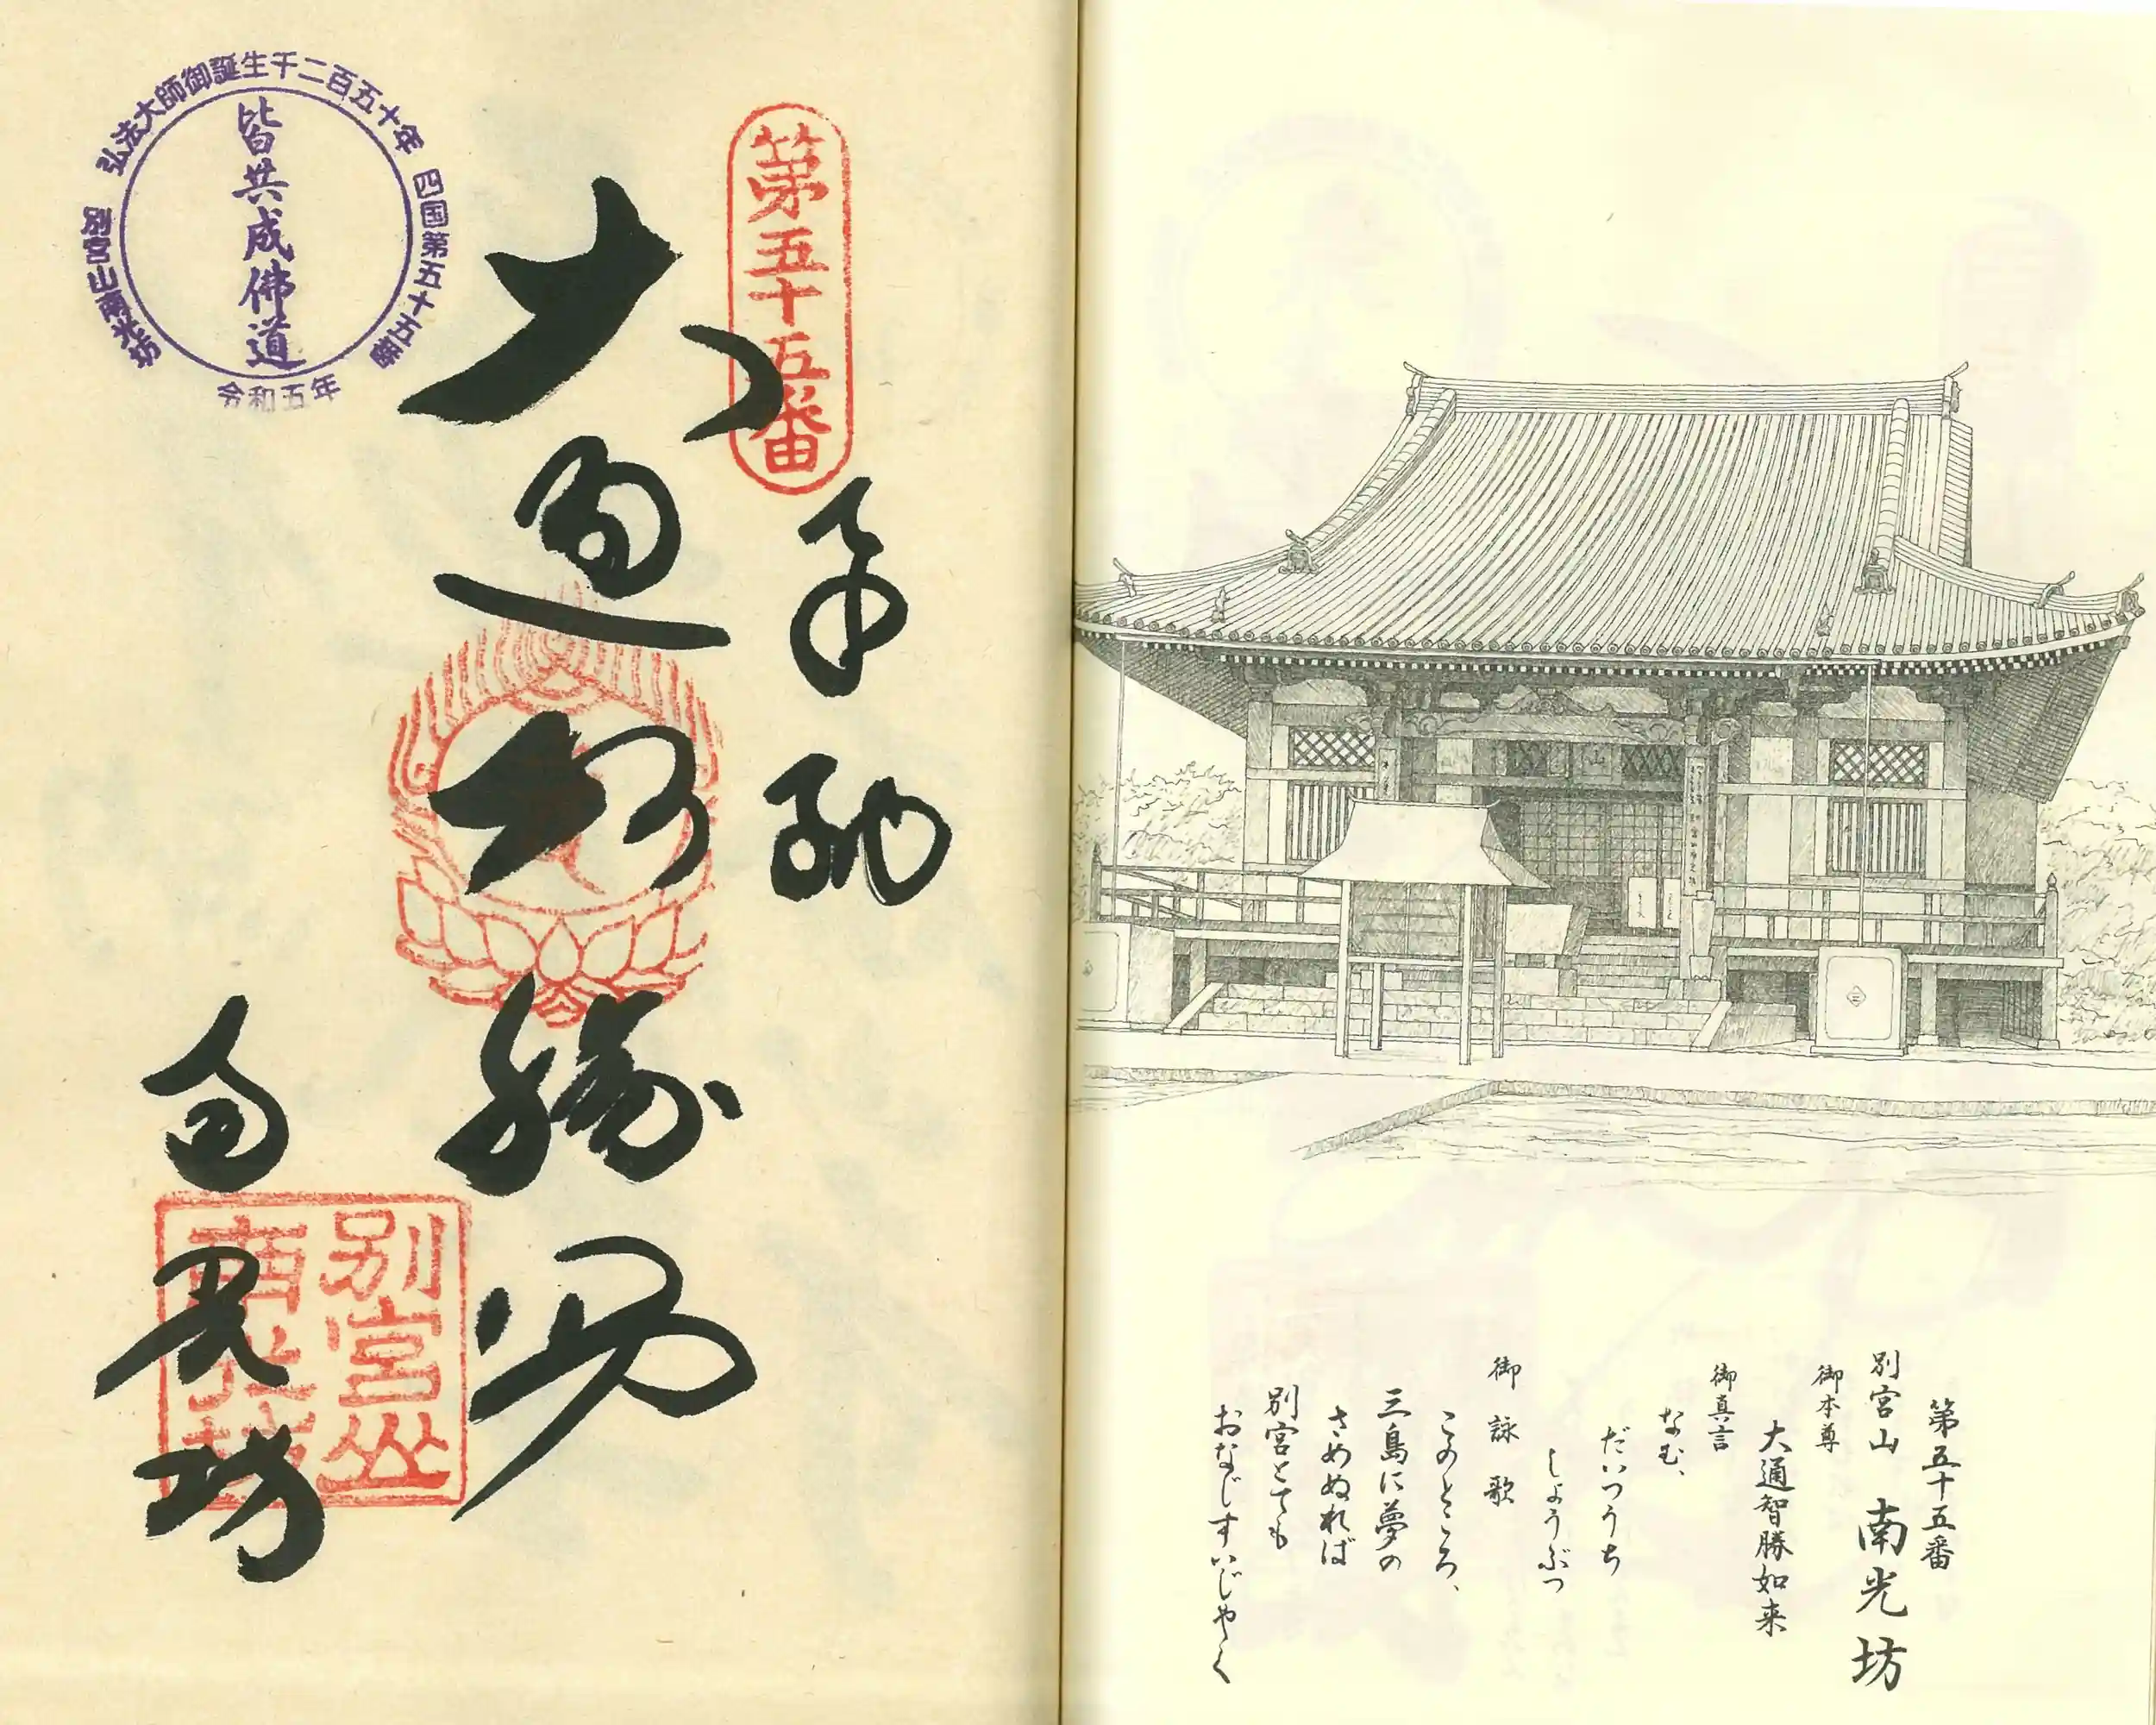 第五十五番
別宮山 南光坊
御本尊
大通智勝如来
御真言
なむ、
だいつうち
しょうぶつ
御詠歌
このところ、
三島に夢の
さめぬれば
別宮とても
おなじすいじゃく
第五十五番
奉納
大通智勝佛
南光坊
別宮山
南光坊
弘法大師御誕生千二百五十年
四国第五十五番
別宮山南光坊
令和五年
皆共成佛道